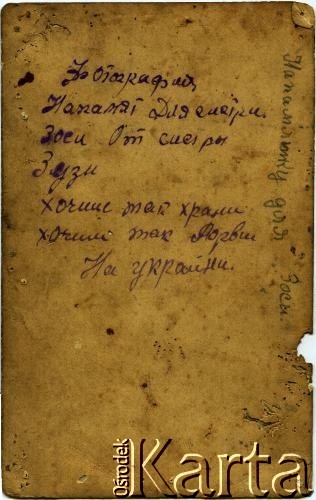 Фотография
На памят Для сестри.
Зоси От систры
Зузи
хочиш так храни
хочиш так Порви
На украйни.
На памятку для Зоси.
Ośrodek
Karta